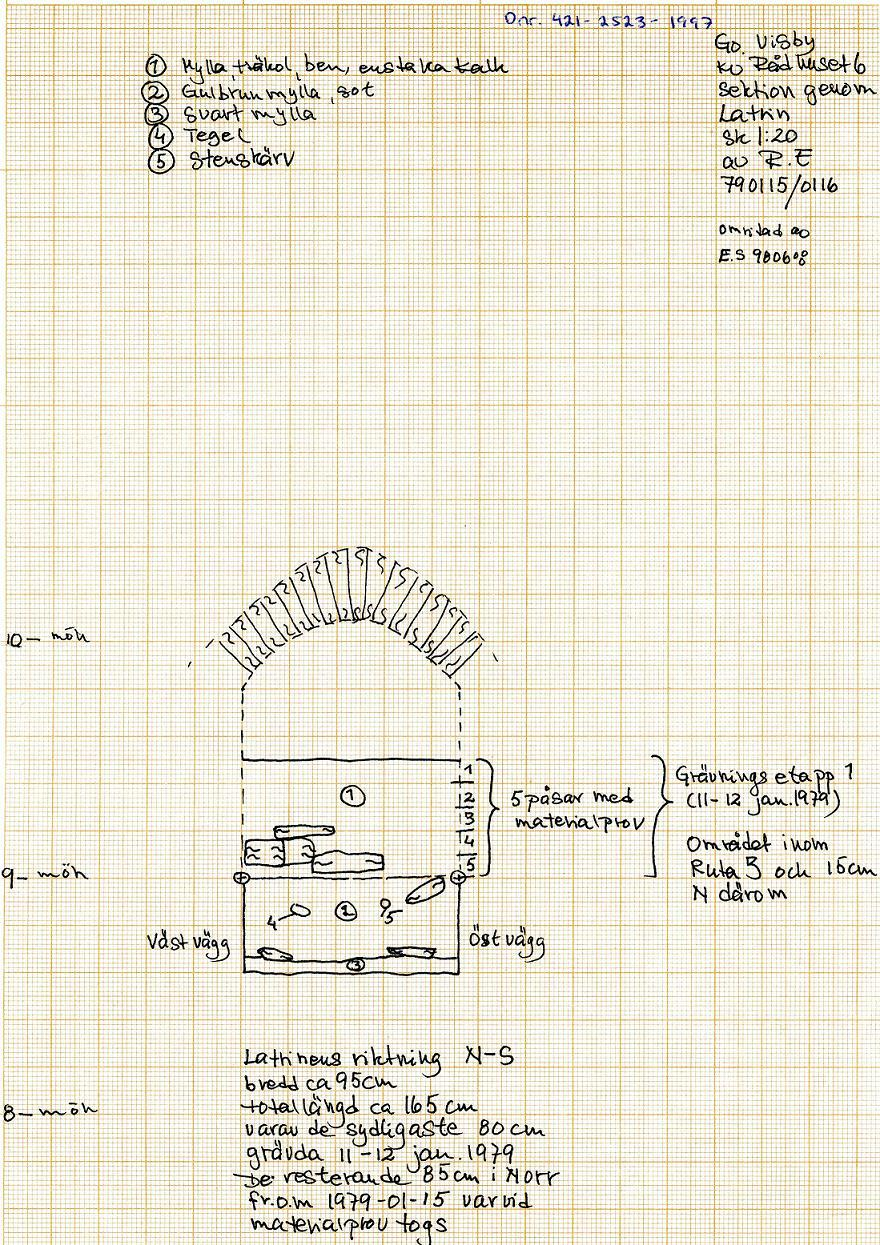 Dnr. 421-2523-1997
Go. Visby
kv Rådhuset 6
sektion genom
Latrin
sk 1:20
av R.E
790115/0116
omritad av
E.S 980608
① Mylla, träkol, ben, enstaka kalk
② Gulbrun mylla, sot
③ Svart mylla
④ Tegel
⑤ Stenskärv
10 - möh
9 - möh
8 - möh
①
1
2
3
4
5
5 påsar med
materialprov
Grävnings etapp 1
(11-12 jan. 1979)
Området inom
Ruta 3 och 15cm
N därom
4
②
5
③
Väst vägg
Öst vägg
Latrinens riktning N-S
bredd ca 95cm
total längd ca 165 cm
varav de sydligaste 80 cm
grävda 11-12 jan. 1979
De resterande 85cm i Norr
fr.o.m 1979-01-15 varvid
materialprov togs